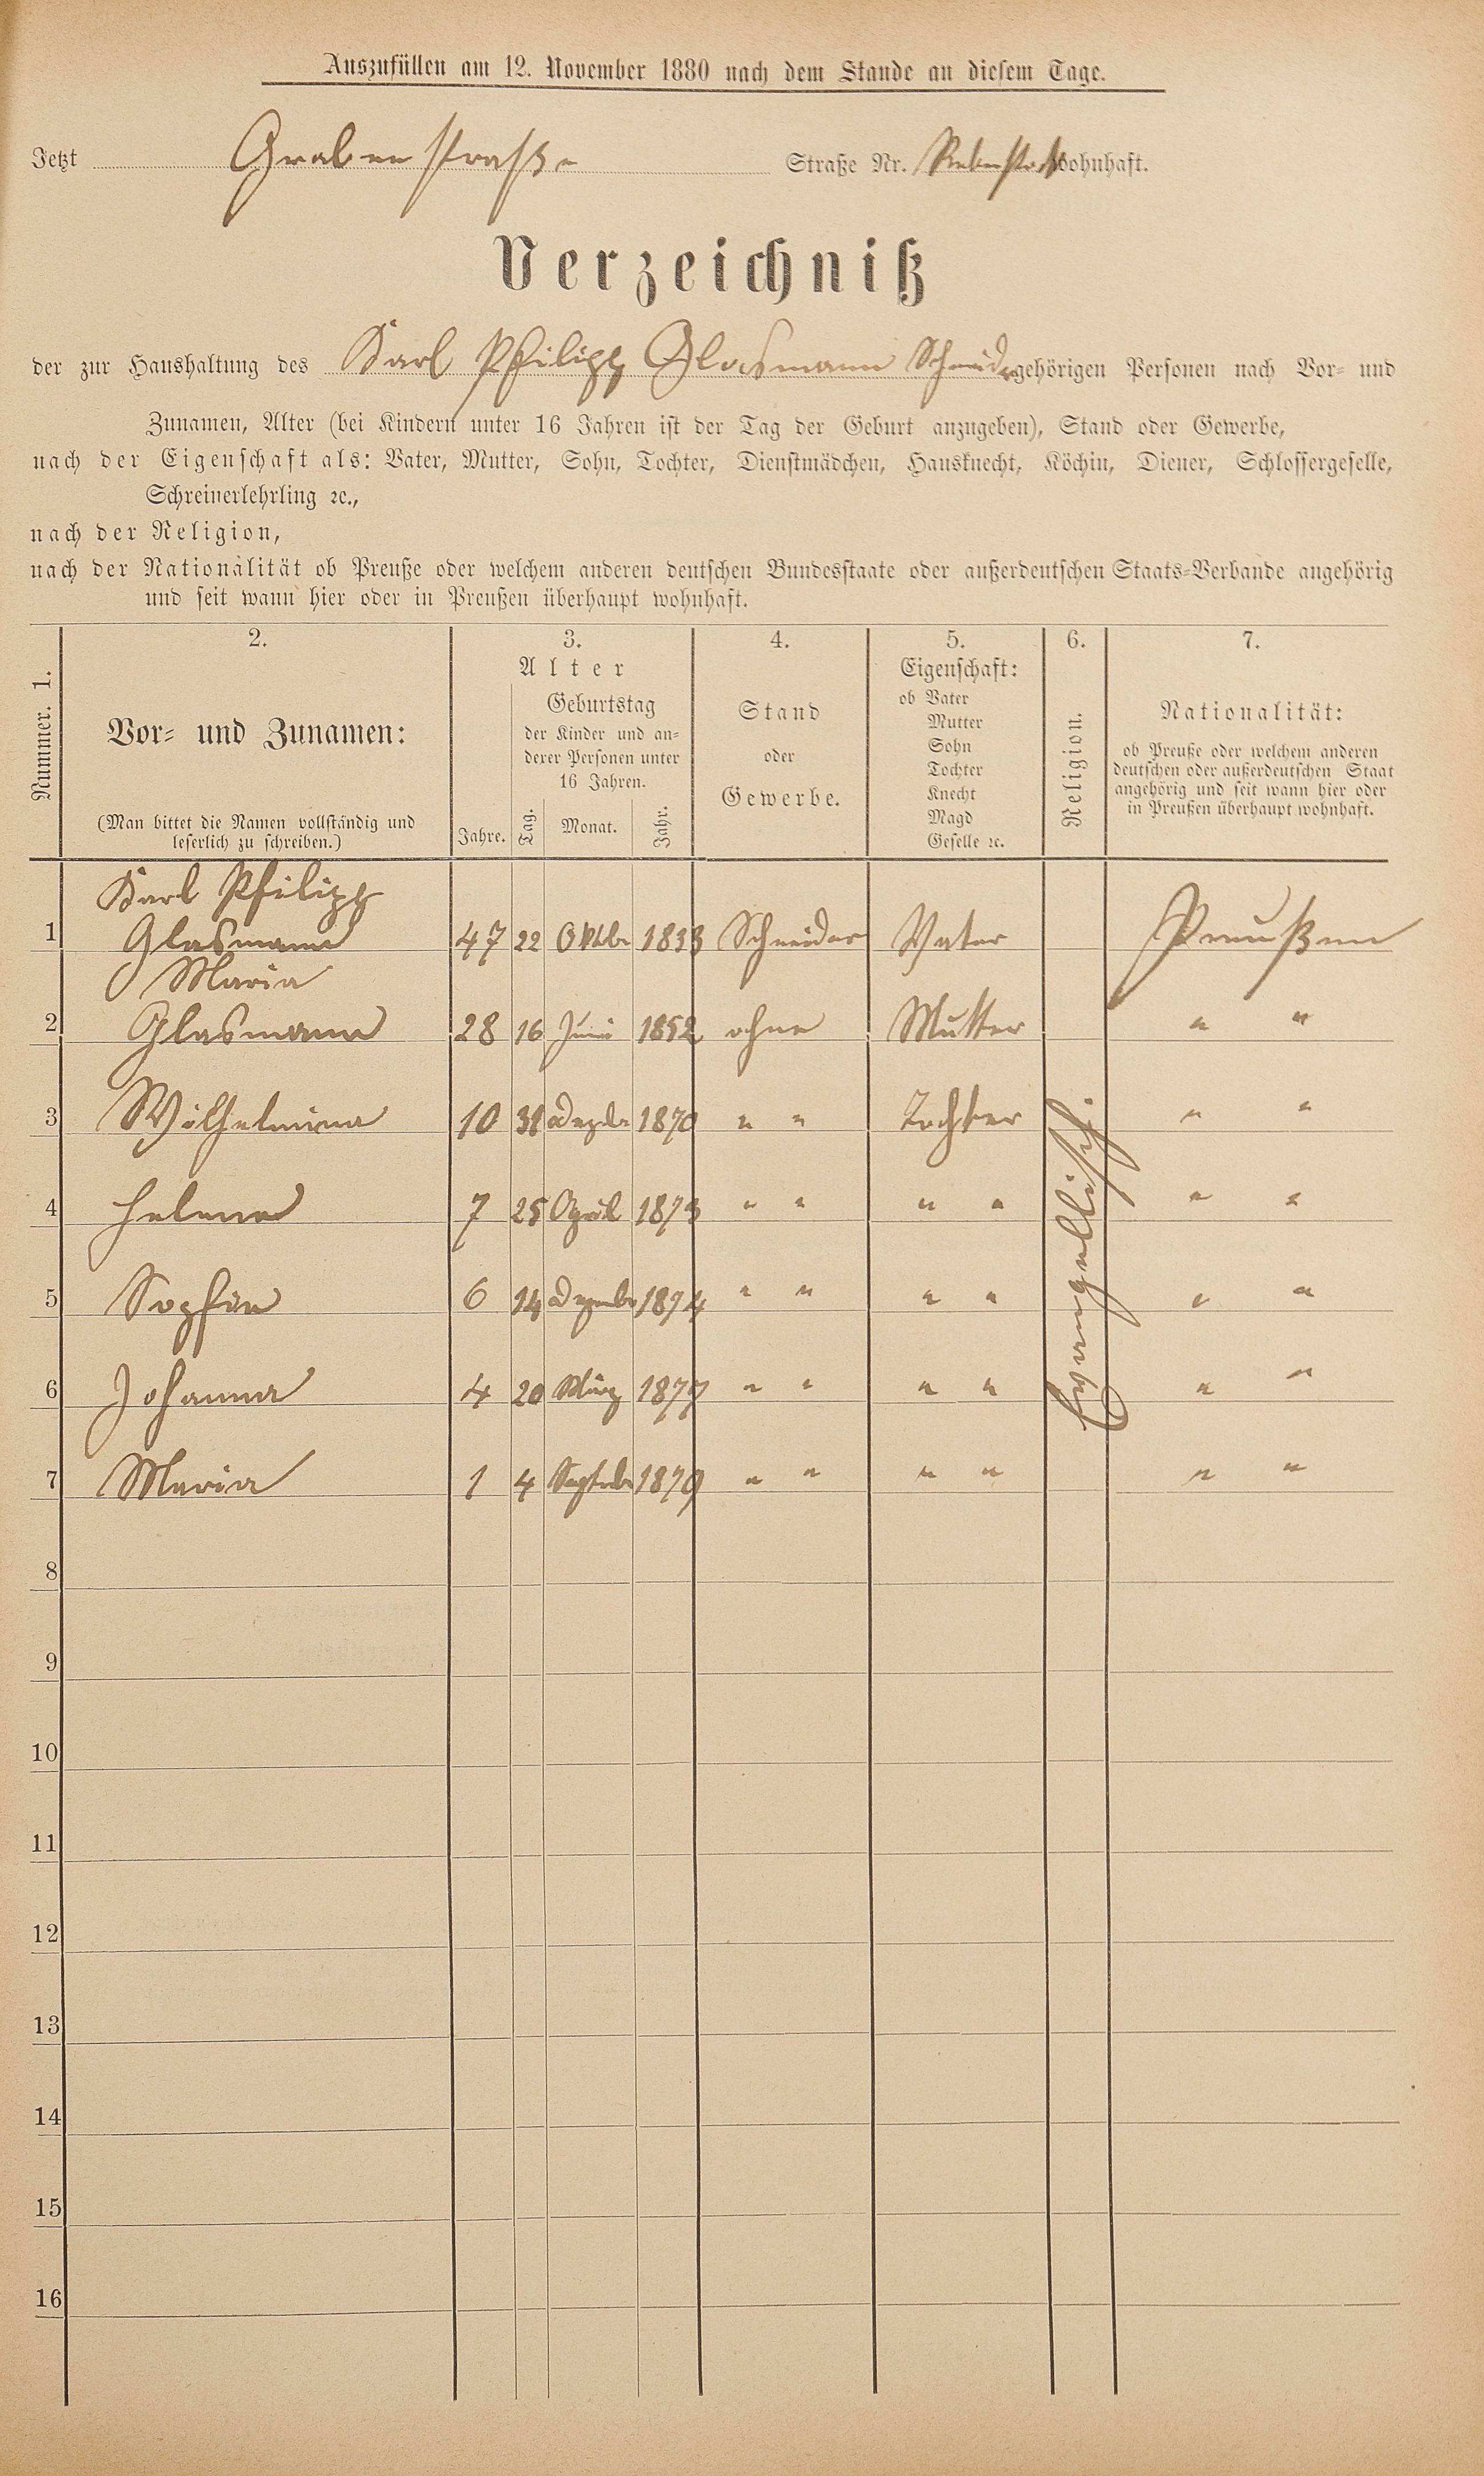 Auszufüllen am 12. November 1880 nach dem Stande an diesem Tage.
Jetzt Grabenstraße Straße Nr. wohnhaft.
Verzeichniß
der zur Haushaltung des Karl Philipp Glasmann Schneider gehörigen Personen nach Vor- und
Zunamen, Alter (bei Kindern unter 16 Jahren ist der Tag der Geburt anzugeben), Stand oder Gewerbe,
nach der Eigenschaft als: Vater, Mutter, Sohn, Tochter, Dienstmädchen, Hausknecht, Köchin, Diener, Schlossergeselle,
Schreinerlehrling ꝛc.,
nach der Religion,
nach der Nationalität ob Preuße oder welchem anderen deutschen Bundesstaate oder außerdeutschen Staats-Verbande angehörig
und seit wann hier oder in Preußen überhaupt wohnhaft.
Nummer. 1.
2.
Vor- und Zunamen:
(Man bittet die Namen vollständig und
leserlich zu schreiben.)
3.
Alter
Jahre.
Geburtstag
der Kinder und an-
derer Personen unter
16 Jahren.
Tag. Monat. Jahr.
4.
Stand
oder
Gewerbe.
5.
Eigenschaft:
ob Vater
Mutter
Sohn
Tochter
Knecht
Magd
Geselle ꝛc.
6.
Religion.
7.
Nationalität:
ob Preuße oder welchem anderen
deutschen oder außerdeutschen Staat
angehörig und seit wann hier oder
in Preußen überhaupt wohnhaft.
Karl Philipp
1 Glasmann 47 22 Oktbr 1833 Schneider Vater Preußen
Maria
2 Glasmann 28 16 Juni 1852 ohne Mutter " "
3 Wilhelmina 10 31 Dezbr 1870 " " Tochter " "
4 Helena 7 25 April 1873 " " " " " "
5 Sophia 6 14 Dezember 1874 " " " " " "
6 Johanna 4 20 März 1877 " " " " " "
7 Maria 1 4 Septbr 1879 " " " " " "
Evangellisch
8
9
10
11
12
13
14
15
16